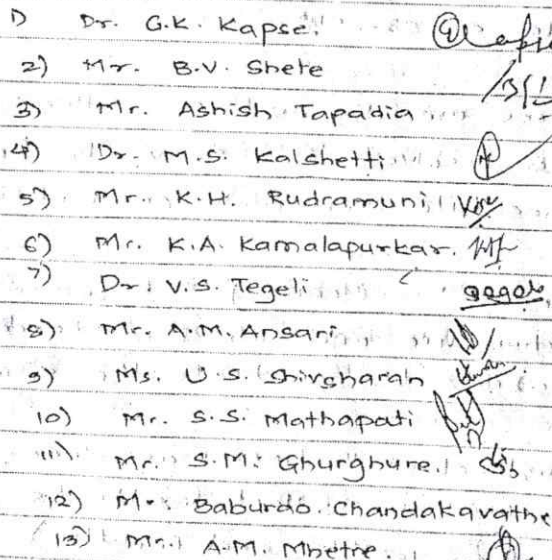 1) Dr. G.K. Kapse.
2) Mr. B.V. Shete
3) Mr. Ashish Tapadia
4) Dr. M.S. Kalshetti
5) Mr. K.H. Rudramuni
6) Mr. K.A. Kamalapurkar.
7) Dr. V.S. Tegeli
8) Mr. A.M. Ansari
9) Ms. U.S. Shivsharan
10) Mr. S.S. Mathapati
11) Mr. S.M. Ghurghure.
12) Mr. Baburao Chandakavathe
13) Mr. A.M. Mhetre.